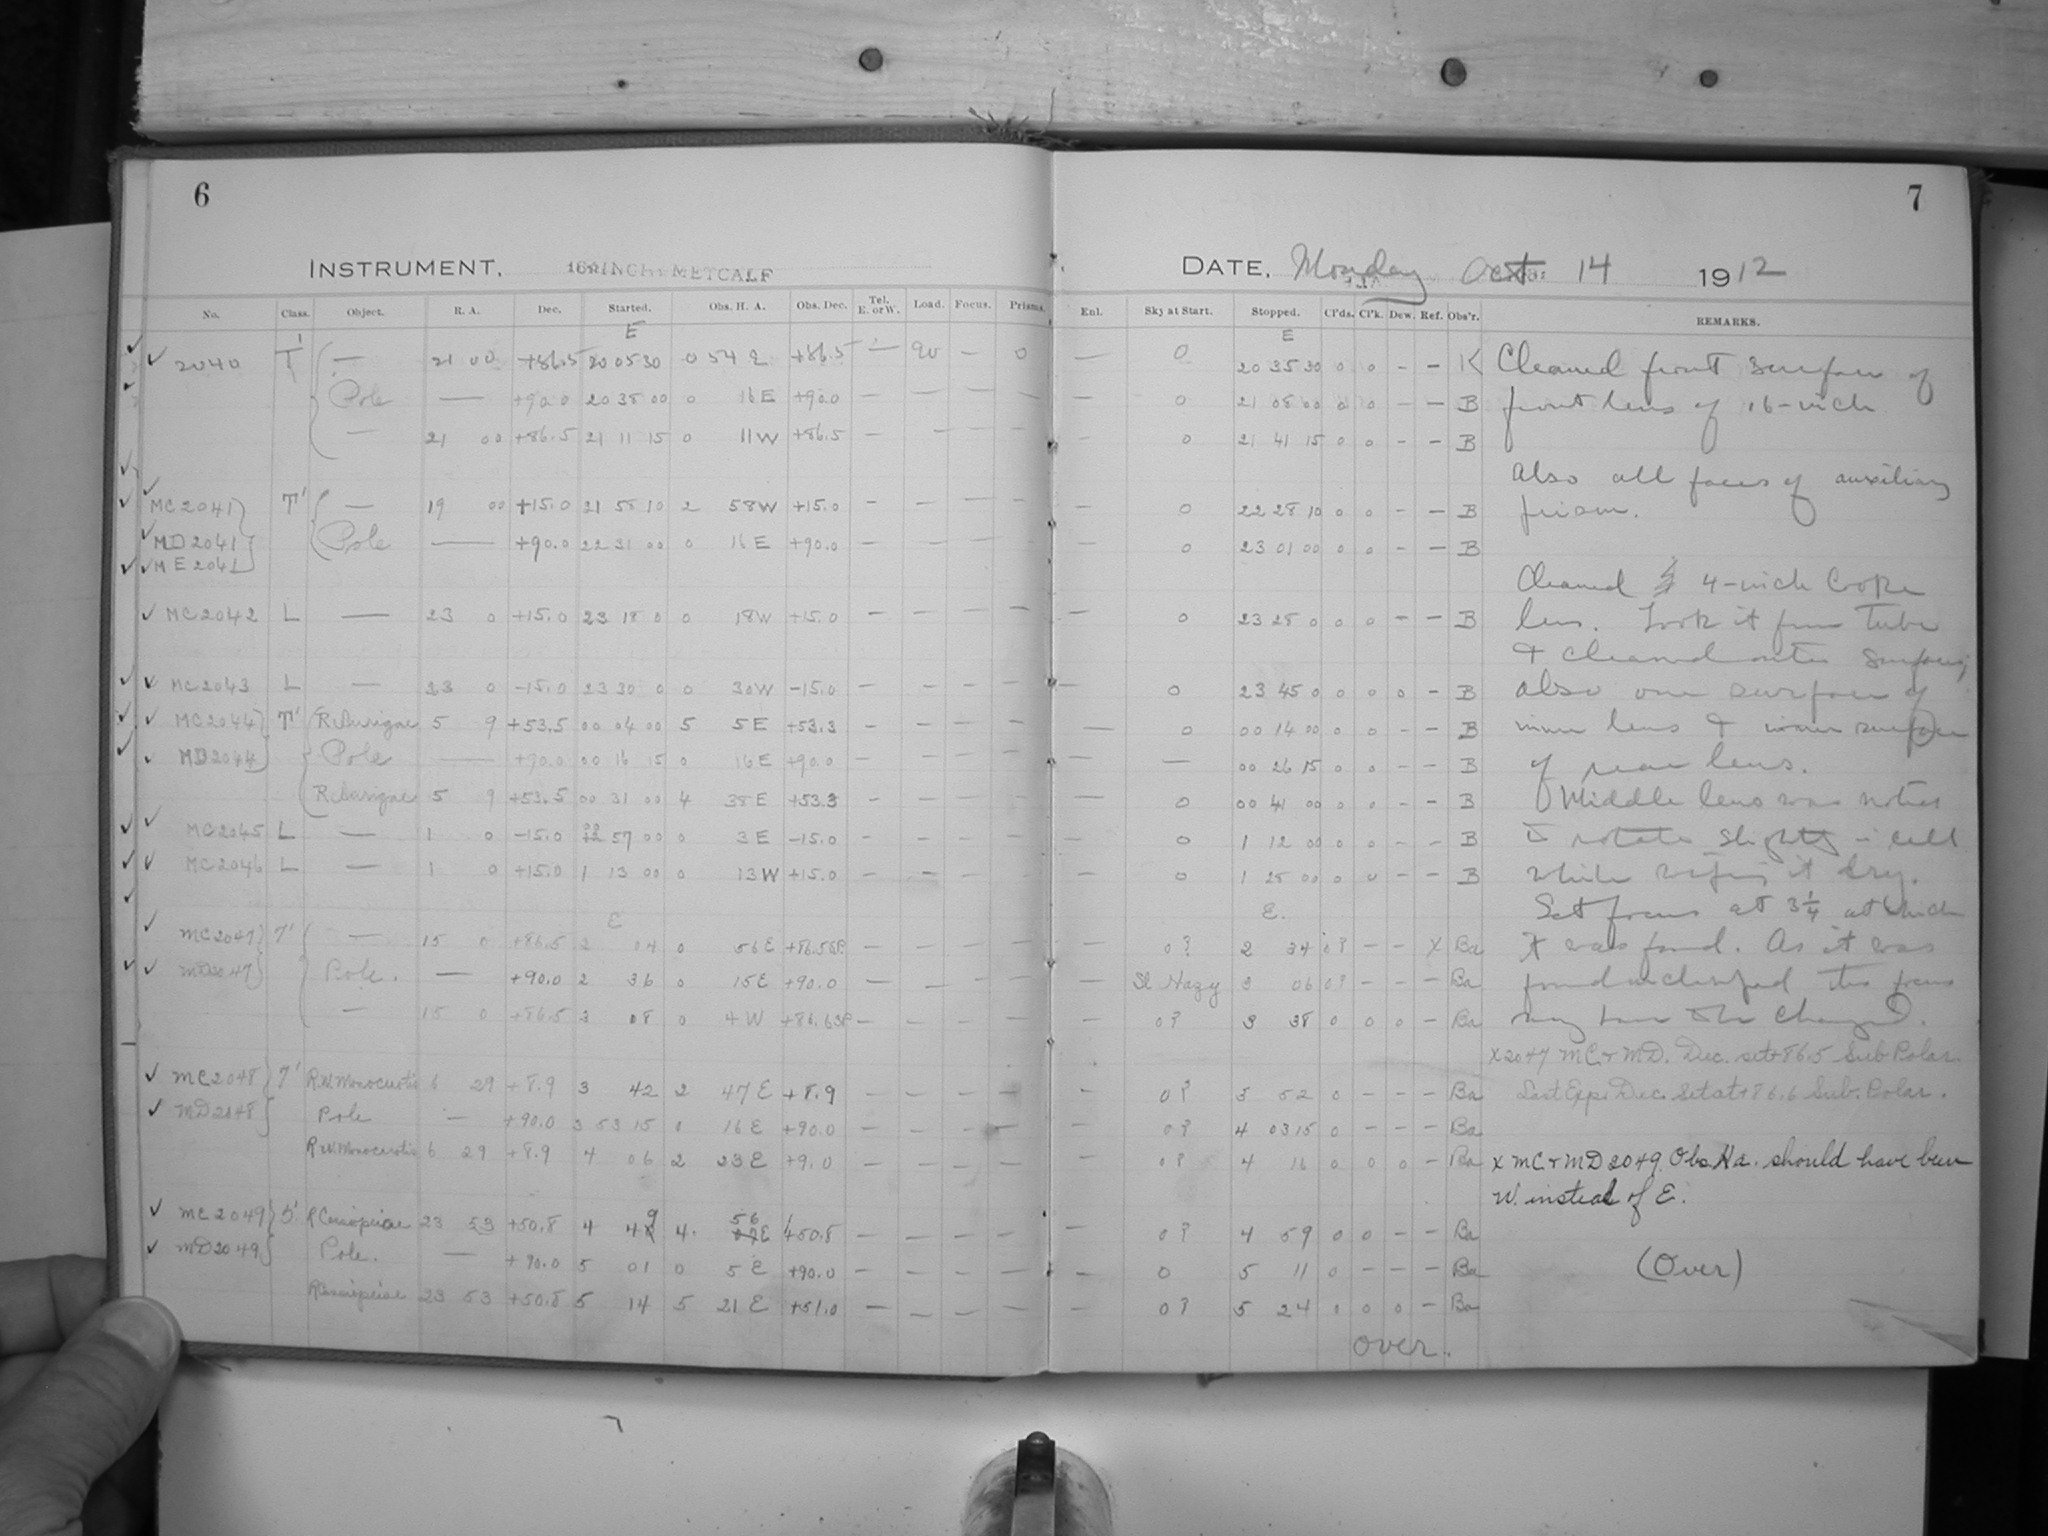 6
INSTRUMENT, 16 INCH METCALF
No. Class. Object. R. A. Dec. Started. Obs. H. A. Obs. Dec. Tel. E. or W. Load. Focus. Prisms.
E
2040 T' — 21 00 +86.5 20 05 30 0 54 E +86.5 — 90 — 0
Pole — +90.0 20 38 00 0 16 E +90.0 — — — —
— 21 00 +86.5 21 11 15 0 11 W +86.5 — — — —
MC 2041 T' — 19 00 +15.0 21 58 10 2 58 W +15.0 — — — —
MD 2041 Pole — +90.0 22 31 00 0 16 E +90.0 — — — —
ME 2041
MC 2042 L — 23 0 +15.0 23 18 0 0 18 W +15.0 — — — —
MC 2043 L — 23 0 -15.0 23 30 0 0 30 W -15.0 — — — —
MC 2044 T' R Aurigae 5 9 +53.5 00 04 00 5 5 E +53.3 — — — —
MD 2044 Pole — +90.0 00 16 15 0 16 E +90.0 — — — —
R Aurigae 5 9 +53.5 00 31 00 4 38 E +53.3 — — — —
MC 2045 L — 1 0 -15.0 00 57 00 0 3 E -15.0 — — — —
MC 2046 L — 1 0 +15.0 1 13 00 0 13 W +15.0 — — — —
E
MC 2047 T' — 15 0 +86.5 2 04 0 56 E +86.5 SP — — — —
MD 2047 Pole. — +90.0 2 36 0 15 E +90.0 — — — —
— 15 0 +86.5 3 08 0 4 W +86.6 SP — — — —
MC 2048 T' R.W. Monocerotis 6 29 +8.9 3 42 2 47 E +8.9 — — — —
MD 2048 Pole — +90.0 3 53 15 0 16 E +90.0 — — — —
R.W. Monocerotis 6 29 +8.9 4 06 2 23 E +9.0 — — — —
MC 2049 5' R Cassiopeiae 23 53 +50.8 4 49 4 56 E +50.8 — — — —
MD 2049 Pole. — +90.0 5 01 0 5 E +90.0 — — — —
R Cassiopeiae 23 53 +50.8 5 14 5 21 E +51.0 — — — —
7
DATE, Monday Oct 14 1912
Enl. Sky at Start. Stopped. Cl'ds. Cl'k. Dew. Ref. Obs'r. REMARKS.
E
— 0 20 35 30 0 0 — — K
— 0 21 08 00 0 0 — — B
— 0 21 41 15 0 0 — — B
— 0 22 28 10 0 0 — — B
— 0 23 01 00 0 0 — — B
— 0 23 28 0 0 0 — — B
— 0 23 45 0 0 0 0 — B
— 0 00 14 00 0 0 — — B
— — 00 26 15 0 0 — — B
— 0 00 41 00 0 0 — — B
— 0 1 12 00 0 0 — — B
— 0 1 25 00 0 0 — — B
E.
— 0? 2 34 0? — — X Ba
— Sl Hazy 3 06 0? — — — Ba
— 0? 3 38 0 0 0 — Ba
— 0? 3 52 0 — — — Ba
— 0? 4 03 15 0 — — — Ba
— 0? 4 16 0 0 0 — Ba
— 0? 4 59 0 0 — — Ba
— 0 5 11 0 — — — Ba
— 0? 5 24 0 0 0 — Ba
over.
Cleaned front surface of
front lens of 16-inch
Also all faces of auxiliary
prism.
Cleaned 4-inch Cooke
lens. Took it from Tube
& cleaned outer surfaces;
also one surface of
inner lens & inner surface
of rear lens.
Middle lens was noted
to rotate slightly in cell
while wiping it dry.
Set focus at 3 1/4 at which
it was found. As it was
found unclamped the focus
may have been changed.
X 2047 MC & MD. Dec. set +86.5 Sub Polar.
Last Exp. Dec. Set at +86.6 Sub. Polar.
X MC & MD 2049 Obs. Ha. should have been
W. instead of E.
(Over)